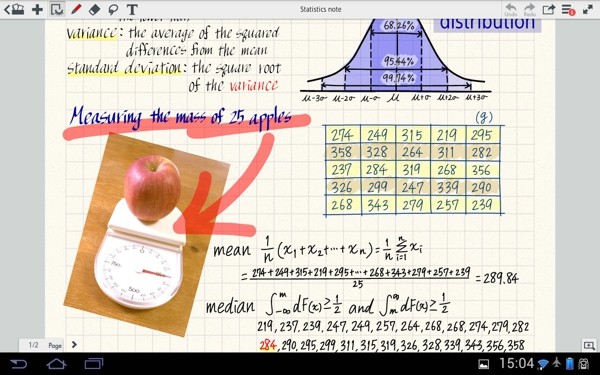 Statistics note
variance: the average of the squared
differences from the mean
standard deviation: the square root
of the variance
distribution
68.26%
95.44%
99.74%
μ-3σ μ-2σ μ-σ μ μ+σ μ+2σ μ+3σ
Measuring the mass of 25 apples
(g)
274 249 315 219 295
358 328 264 311 282
237 284 319 268 356
326 299 247 339 290
268 343 279 257 239
mean 1/n (x1+x2+…+xn) = 1/n Σ i=1 n xi
= 274+249+315+219+295+…+268+343+279+257+239 / 25 = 289.84
median ∫-∞ m dF(x) ≥ 1/2 and ∫m ∞ dF(x) ≥ 1/2
219, 237, 239, 247, 249, 257, 264, 268, 268, 274, 279, 282
284, 290, 295, 299, 311, 315, 319, 326, 328, 339, 343, 356, 358
1/2 Page
15:04